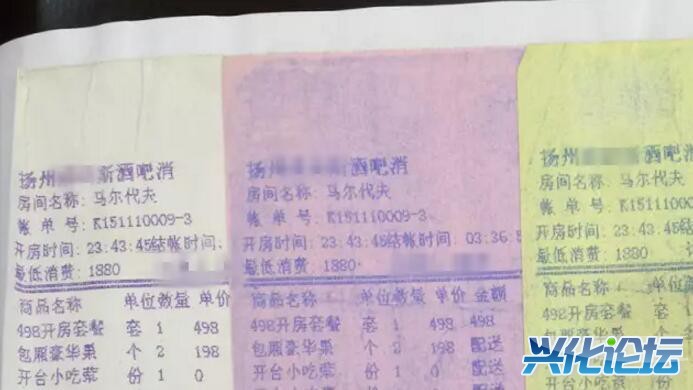 扬州 新酒吧消
房间名称: 马尔代夫
帐 单 号: K151110009-3
开房时间: 23:43:45结帐时间:
最低消费: 1880
商品名称 单位数量 单价
498开房套餐 套 1 498
包厢豪华果 个 2 198
开台小吃荤 份 1 0
扬州 新酒吧消
房间名称: 马尔代夫
帐 单 号: K151110009-3
开房时间: 23:43:45结帐时间: 03:36:5
最低消费: 1880
商品名称 单位数量 单价 金额
498开房套餐 套 1 498 498
包厢豪华果 个 2 198 配送
开台小吃荤 份 1 0 配送
扬州
房间名称: 马
帐 单 号: K1
开房时间: 23
最低消费: 18
商品名称
498开房套餐
包厢豪华果
开台小吃荤
兴化论坛